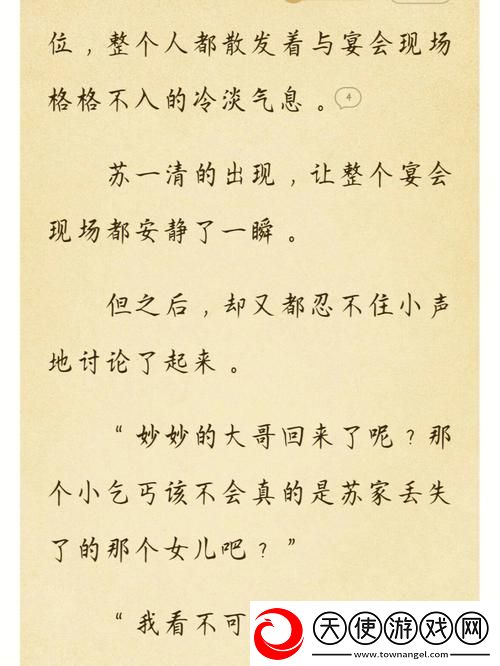 位，整个人都散发着与宴会现场
格格不入的冷淡气息。4
苏一清的出现，让整个宴会
现场都安静了一瞬。
但之后，却又都忍不住小声
地讨论了起来。
“妙妙的大哥回来了呢？那
个小乞丐该不会真的是苏家丢失
了的那个女儿吧？”
“我看不可
天使游戏网
www.townangel.com